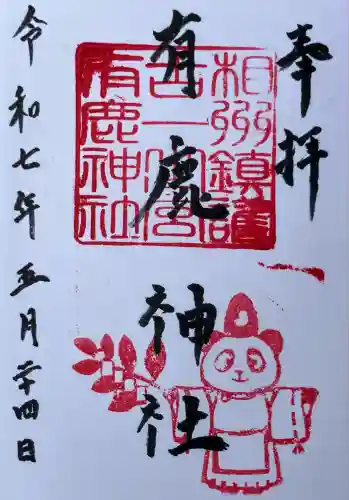 奉拝
有鹿神社
相州鎮護
古一宮
有鹿神社
令和七年五月二十四日